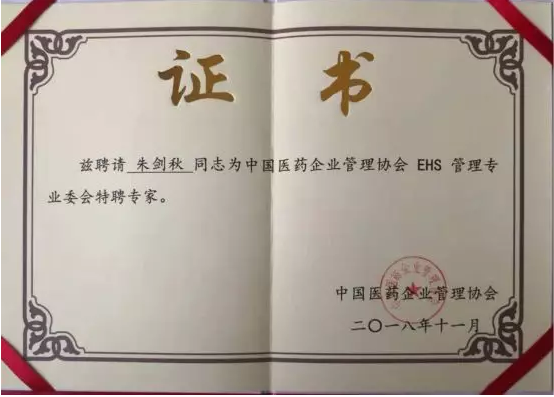 证 书
兹聘请 朱剑秋 同志为中国医药企业管理协会 EHS 管理专
业委会特聘专家。
中国医药企业管理协会
二〇一八年十一月